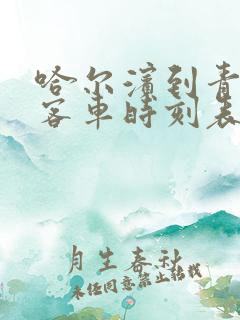 哈尔滨到青
客车时刻表
月生春秋
未经同意禁止转载